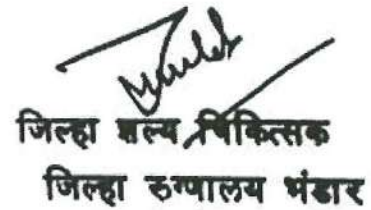 जिल्हा शल्य चिकित्सक
जिल्हा रुग्णालय भंडार